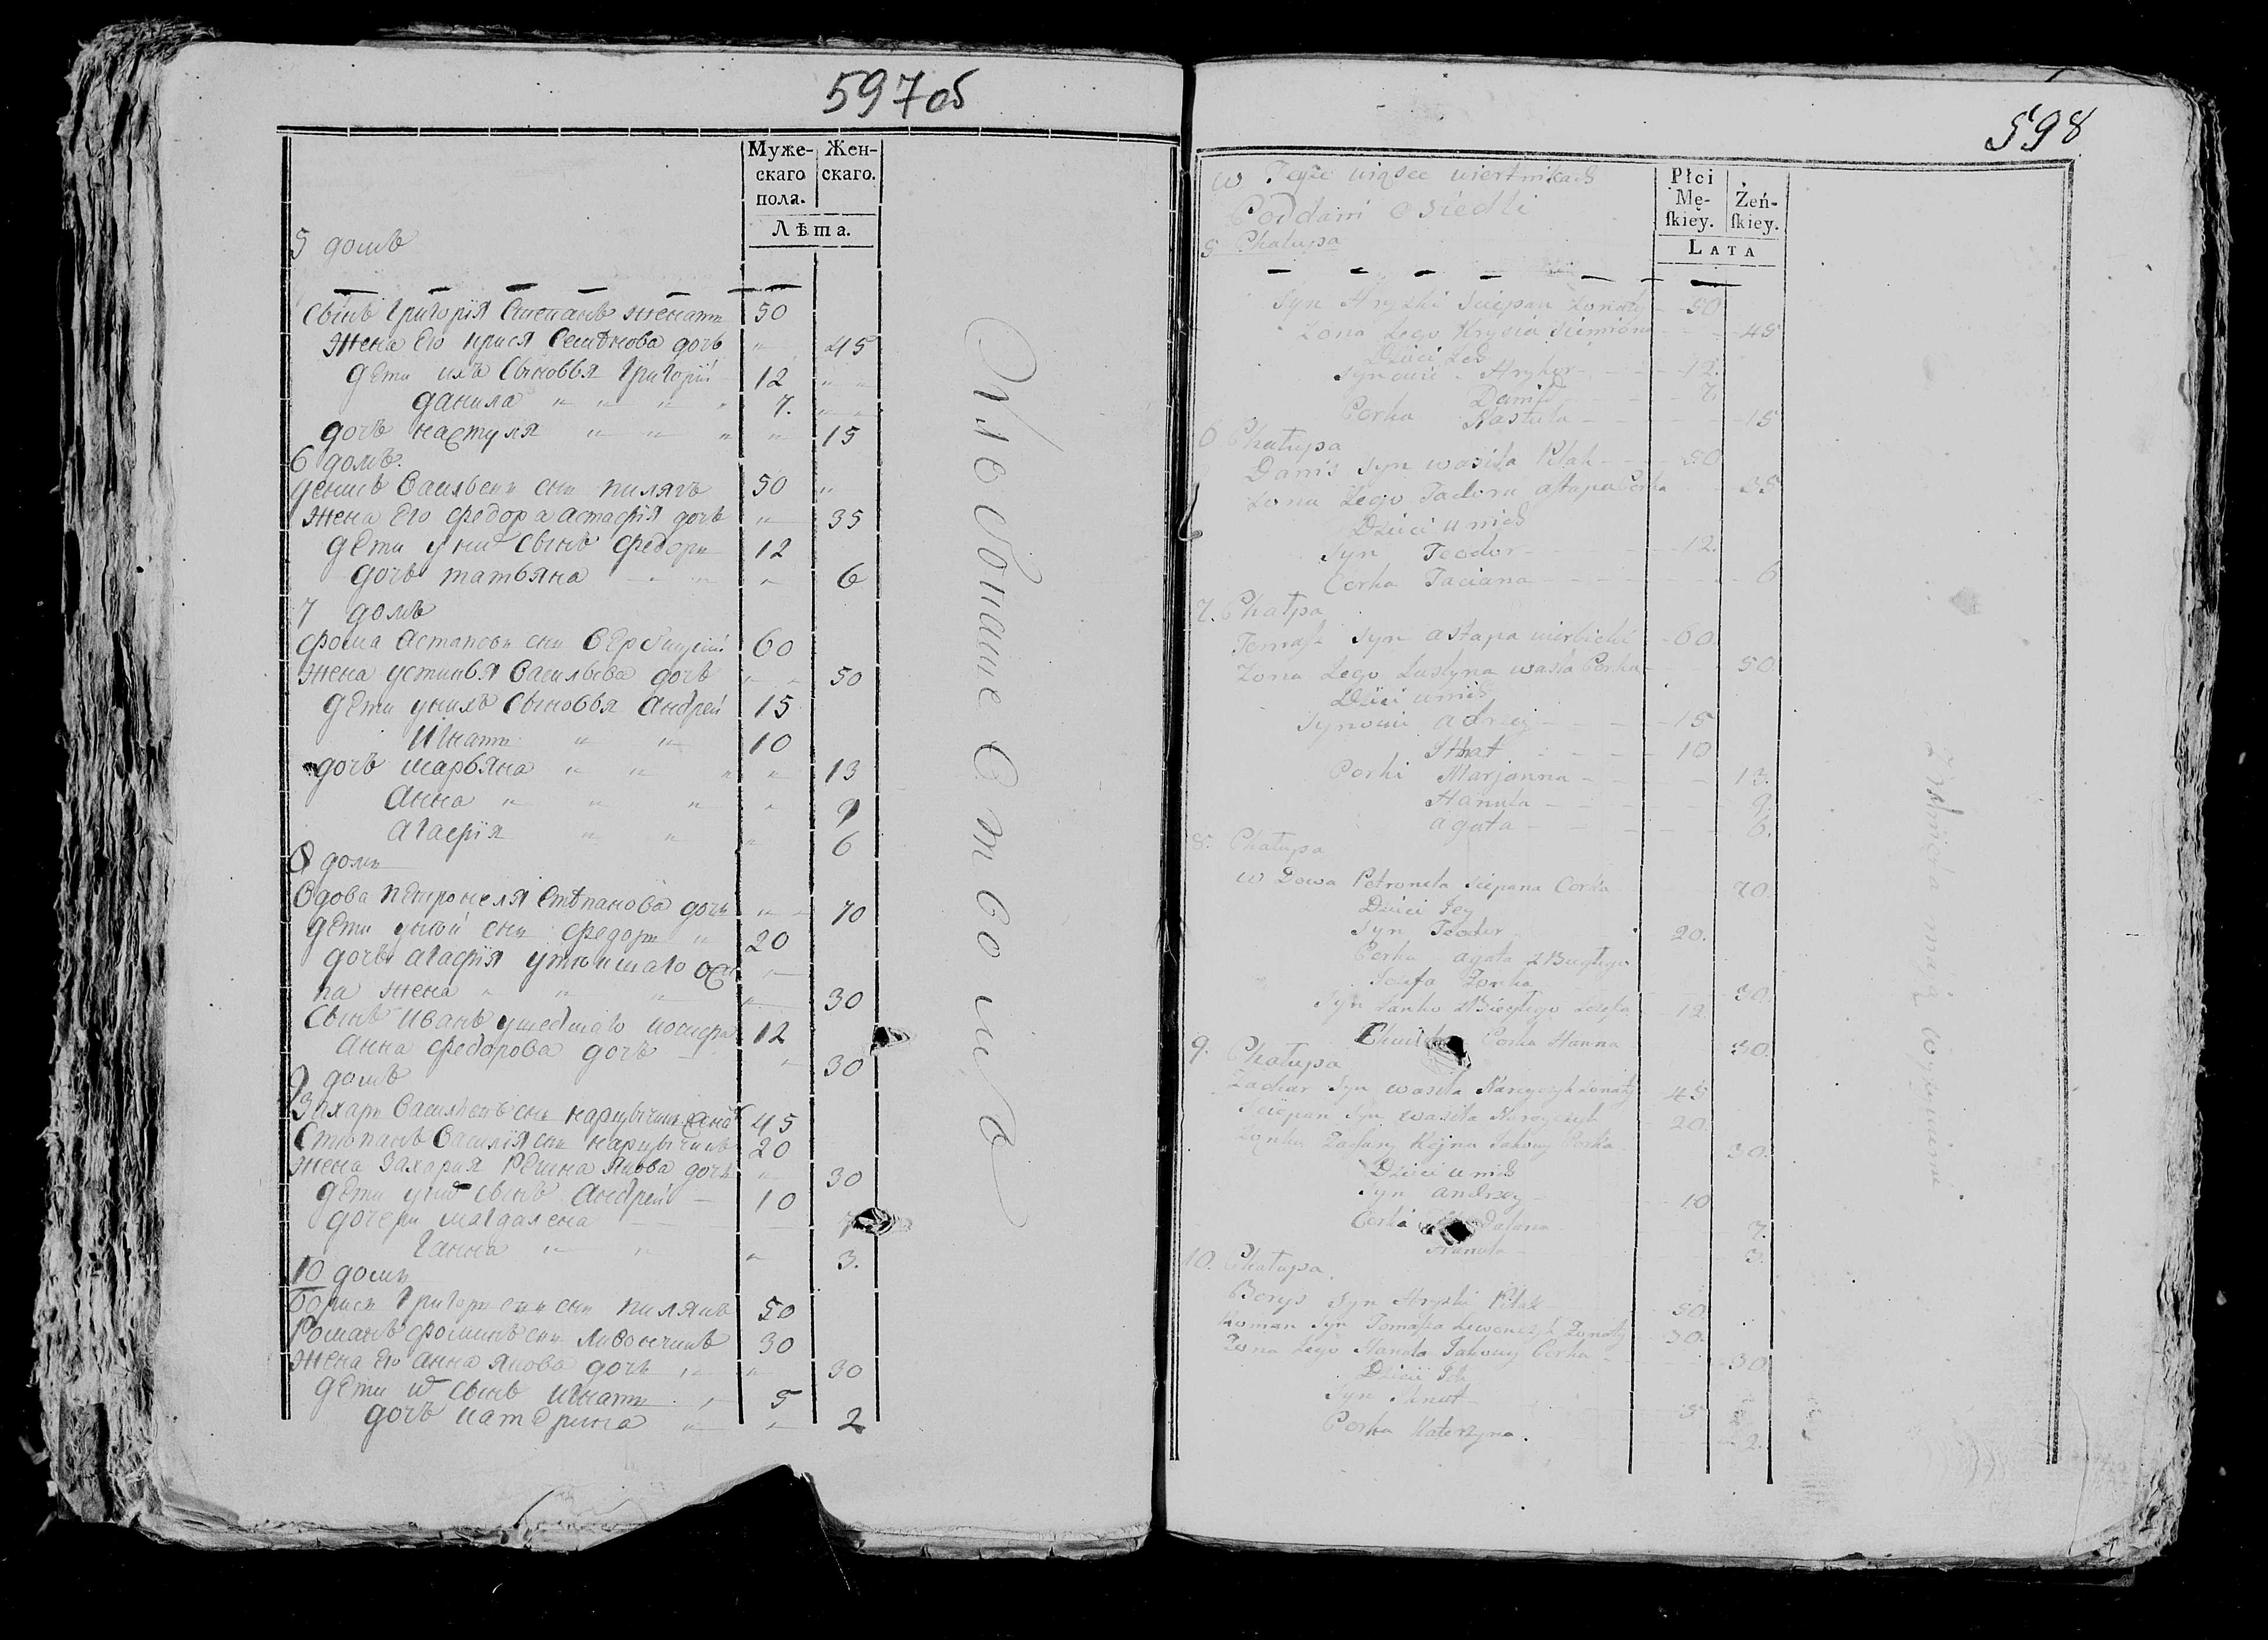 597 об
Муже-
скаго
пола.
Жен-
скаго.
Лѣта.
5 домъ
сынъ Григорія Степанъ женатъ 50
жена Его крися Семѣнова дочь " 45
дети ихъ Сыновья Григорій 12 " "
данила " " " " 7. " "
дочь настуля " " " " 15
6 домъ.
денисъ Васильевъ сынъ пилякъ 50 "
жена Его федора астафія дочь " 35
дети у них сынъ федоръ 12
дочь татьяна " " 6
7 домъ
фома Астаповъ сынъ Вербицкій 60
жена устинья Васильева дочь " " 50
дети унихъ сыновья Андрей 15
Игнатъ " " 10
дочь марьяна " " " " 13
Анна " " " " 9
Агафія " " " 6
8 домъ
Вдова петронеля Степанова дочь " " 70
дети уней сынъ федоръ " 20
дочь агафія утекшаго оси "
па жена " " " " 30
Сынъ Иванъ ушедшаго 12
Анна федорова дочь " 30
9 домъ
Захаръ Васильевъ сынъ 45
Степанъ Василія сынъ 20
жена Захария Регина Якова дочь " 30
дети у них сынъ Андрей 10
дочери магдалена
ганна " " " 3.
10 домъ
Борисъ Григорьевъ сынъ пилякъ 50
Романъ фоминъ сынъ 30
жена Его анна якова дочь " " 30
дети их сынъ игнатъ " 5
дочь катерина " " 2
Жительство имѣ
598
Płci
Mę-
ſkiey.
Żeń-
ſkiey.
LATA
w Teyże wiosce wiertnikach
Poddani Osiedli
5 Chałupa
Syn Hryszki Sciepan Żonaty 50
Zona Iego Krysia Siemiona 45
Dzieci Ich
Synowie Hryhor 12.
Daniło 7
Corka Nastula 15
6 Chałupa
Danis Syn wasila Pilak 50
Zona Iego Fadora astapa Corka 35
Dzieci u nich
Syn Teodor 12.
Corka Taciana 6
7. Chałpa
Tomasz Syn astapa wierbicki 60
Zona Iego Iustyna wasila Corka 50
Dzieci u nich
Synowie adrzej 15
Ihnat 10
Corki Marjanna 13.
Hanula 9.
agata 6.
8. Chałupa
w Dowa Petronela Sciepana Corka 70.
Dzieci Jey
Syn Teodor 20.
Corka agata zBiegłego
Iozefa Zonka 30.
Syn Ianko zBiegłego Iozefa 12
Corka Hanna 30.
9. Chałupa
Zachar Syn wasila Żonaty 45
Sciepan Syn wasila 20.
Zonka Zachary Rejna Jakowy Corka 30.
Dzieci u nich
Syn andrzey 10
Corki 7.
Hanula 3.
10. Chałupa.
Borys Syn Hryszki Pilak 50.
Roman Syn Tomasza Żonaty 30.
Zona Iego Hanula Jakowy Corka 30
Dzieci Ich
Syn Ihnat 5
Corka Katerzyna. 2.